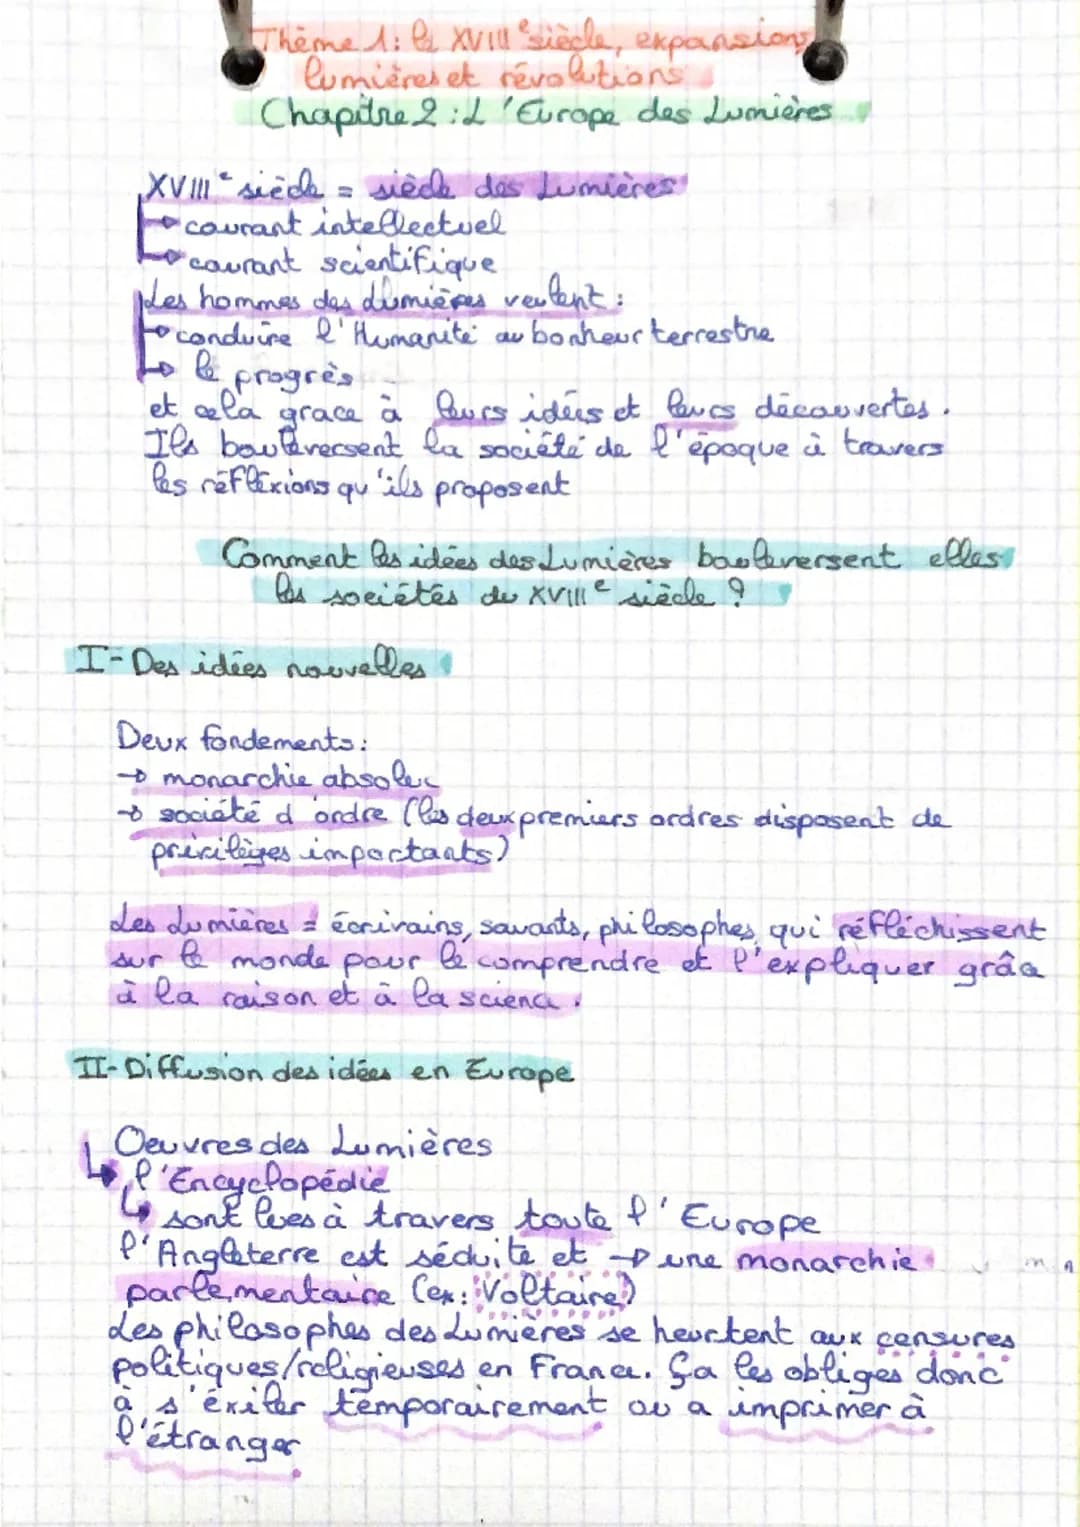 Thème 1: le XVIIIe siècle, expansions,
lumières et révolutions
Chapitre 2 : L'Europe des Lumières
XVIIIe siècle = siècle des Lumières
→ courant intellectuel
→ courant scientifique
Les hommes des Lumières veulent :
→ conduire l'Humanité au bonheur terrestre
→ le progrès
et cela grace à leurs idées et leurs découvertes.
Ils bouleversent la société de l'époque à travers
les réfléxions qu'ils proposent
Comment les idées des Lumières bouleversent elles
les sociétés du XVIIIe siècle ?
I- Des idées nouvelles
Deux fondements :
→ monarchie absolue
→ société d'ordre (les deux premiers ordres disposent de
privilèges importants)
Les Lumières = écrivains, savants, philosophes, qui réfléchissent
sur le monde pour le comprendre et l'expliquer grâce
à la raison et à la science.
II- Diffusion des idées en Europe
Oeuvres des Lumières
↳ l'Encyclopédie
↳ sont lues à travers toute l'Europe
l'Angleterre est séduite et → une monarchie
parlementaire (ex: Voltaire)
Les philosophes des Lumières se heurtent aux censures
politiques/religieuses en France. Ça les obliges donc
à s'éxiler temporairement ou a imprimer à
l'étranger